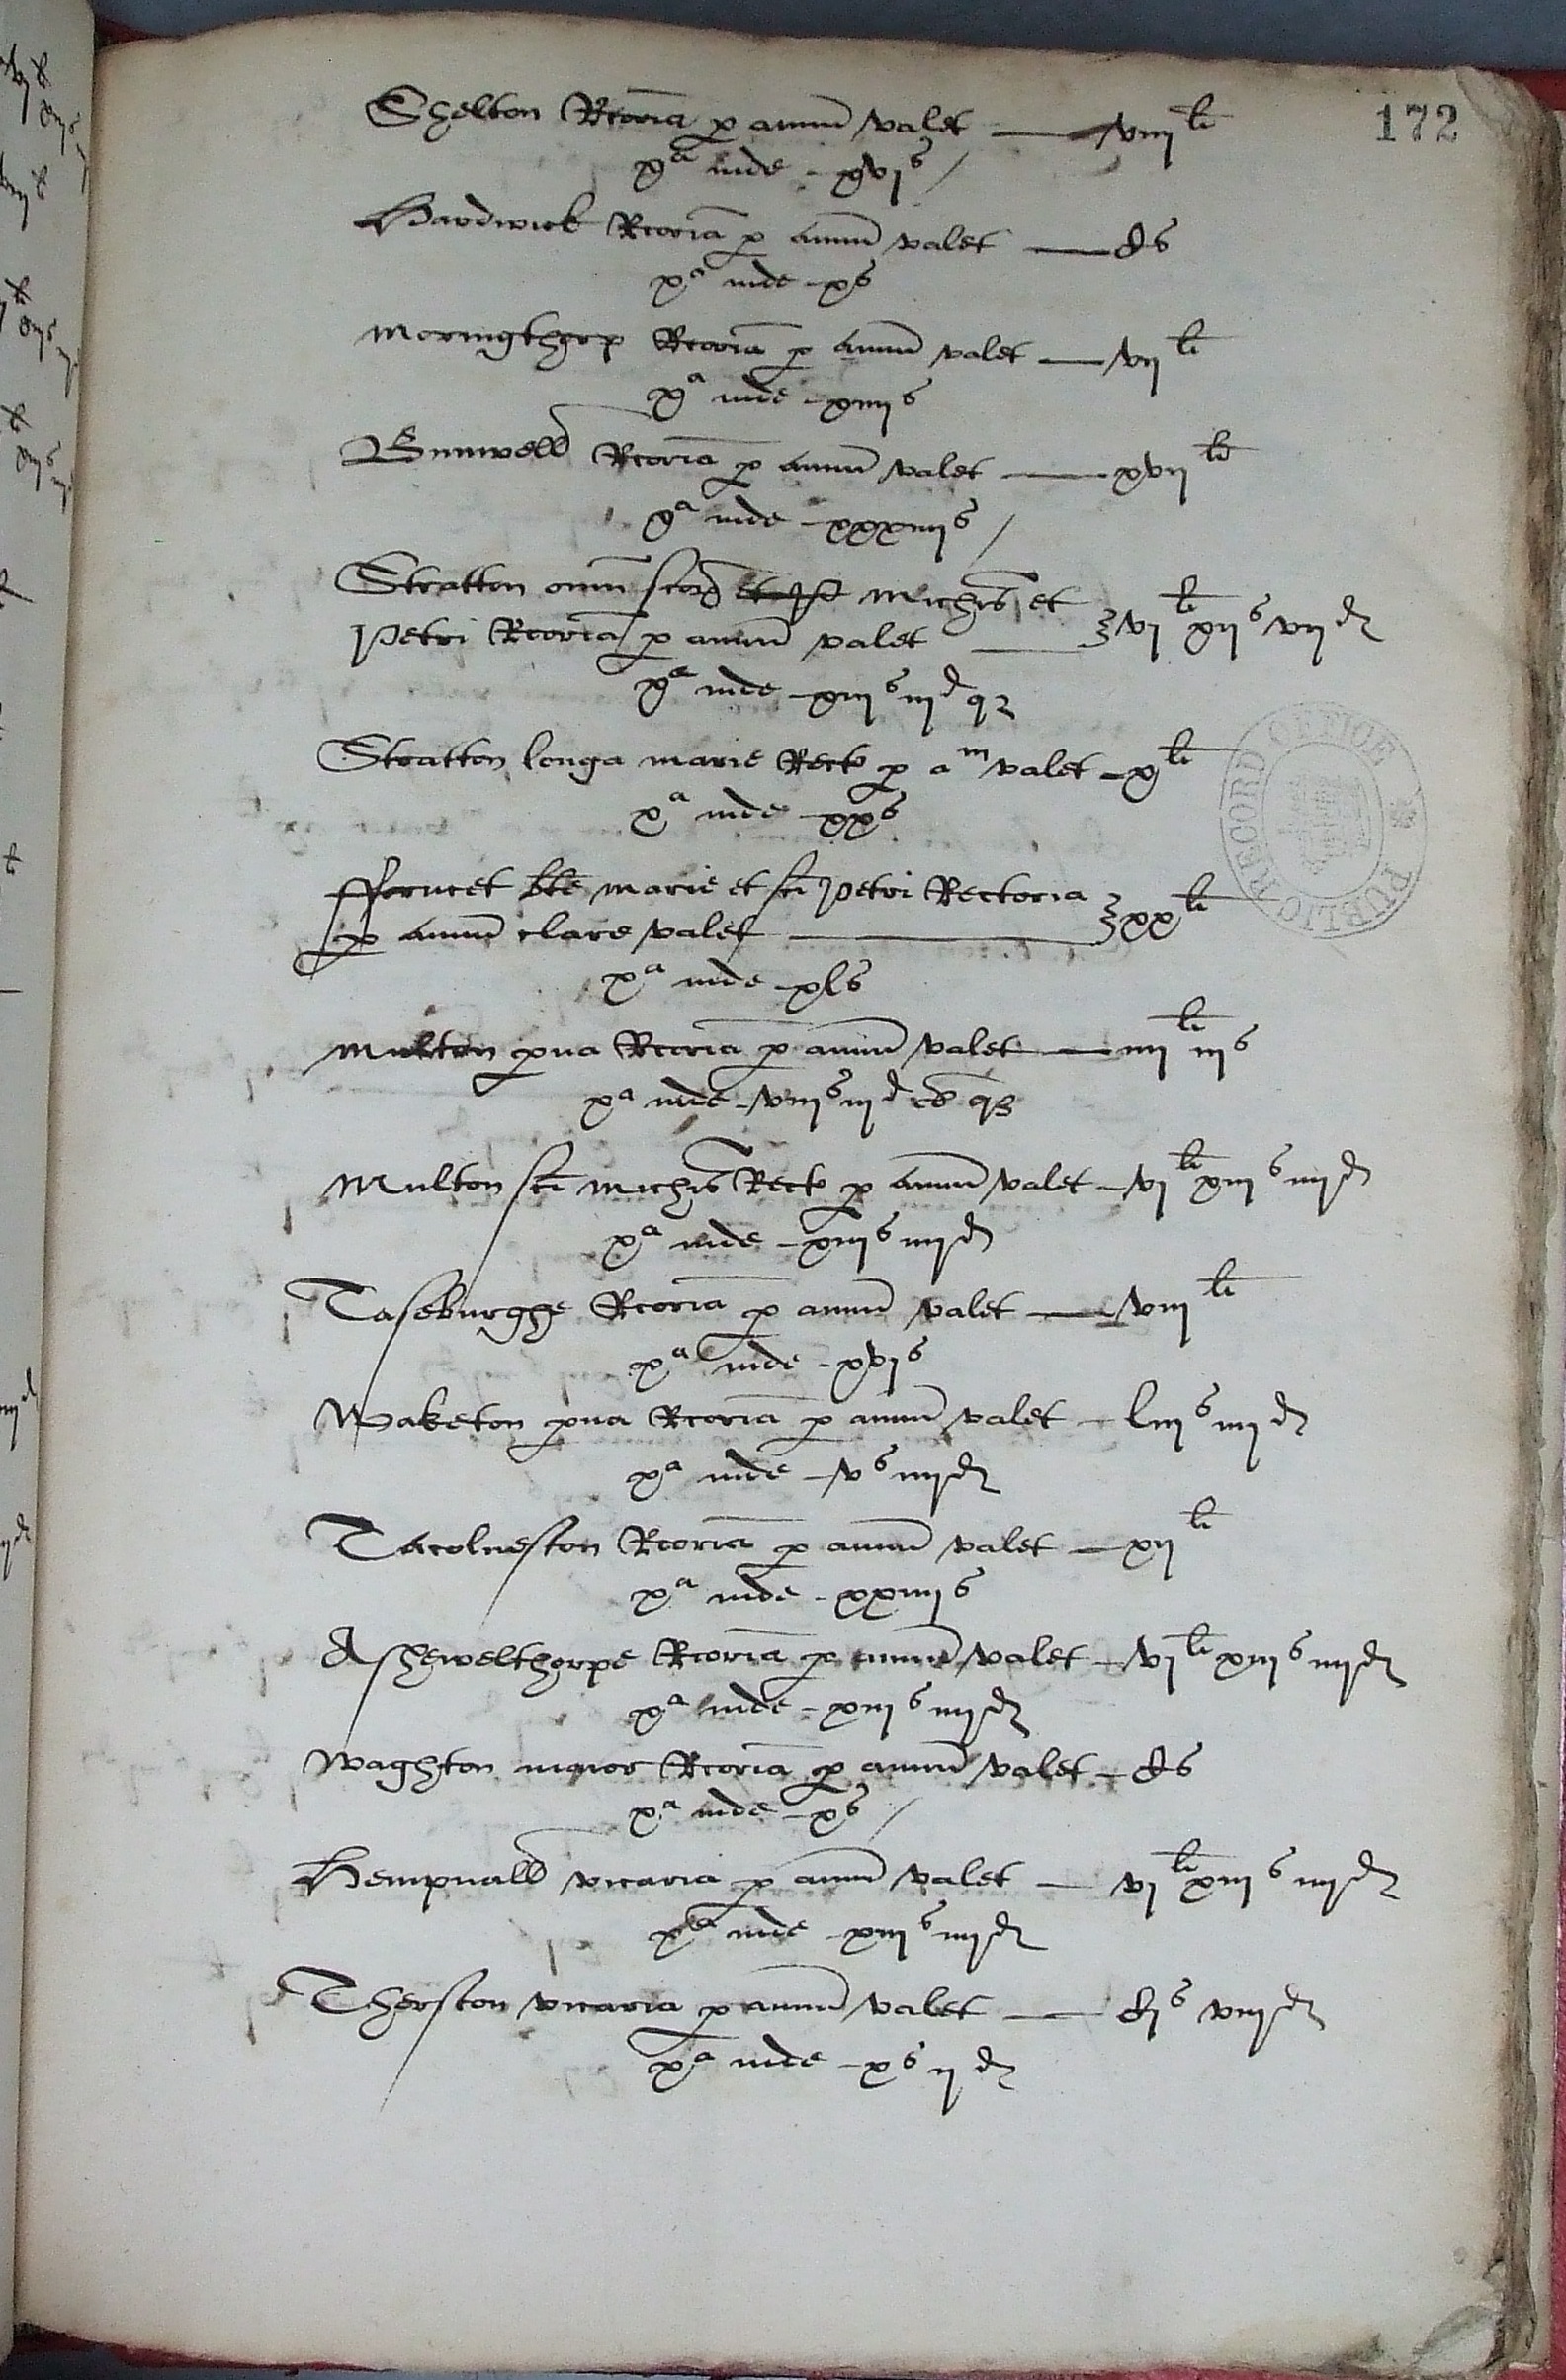 172
Shelton Rcoria p annu valet — viij li
xa inde - xvj s /
Hardwick Rcoria p annu valet — C s
xa inde - x s
Moringthorp Rcoria p annu valet — vij li
xa inde - xiiij s
Bunwell Rcoria p annu valet — xvij li
xa inde - xxxiiij s /
Stratton omn scor et Michis et
Petri Rcoria p annu valet — } vj li xij s vij d
xa inde - xiij s iij d q
Stratton longa marie Recto p a m valet - x li
xa inde - xx s
fforncet bte marie et sti Petri Rectoria
p annu clare valet — } xx li
xa inde - xl s
Multon pua Rcoria p annu valet — iiij li iij s
xa inde - viij s iij d ob q
Multon sti Michis Recto p annu valet - vj li xiij s iiij d
xa inde - xiij s iiij d
Taseburghe Rcoria p annu valet — viij li
xa inde - xvj s
Waketon pua Rcoria p annu valet - liij s iiij d
xa inde - v s iiij d
Tacolneston Rcoria p annu valet — xij li
xa inde - xxiiij s
Ashewelthorpe Rcoria p annu valet - vj li xiij s iiij d
xa inde - xiij s iiij d
Waghton maior Rcoria p annu valet - C s
xa inde - x s /
Hempnall vicaria p annu valet — vj li xiij s iiij d
xa inde - xiij s iiij d
Therston vicaria p annu valet — Cj s viij d
xa inde - x s ij d
PUBLIC RECORD OFFICE